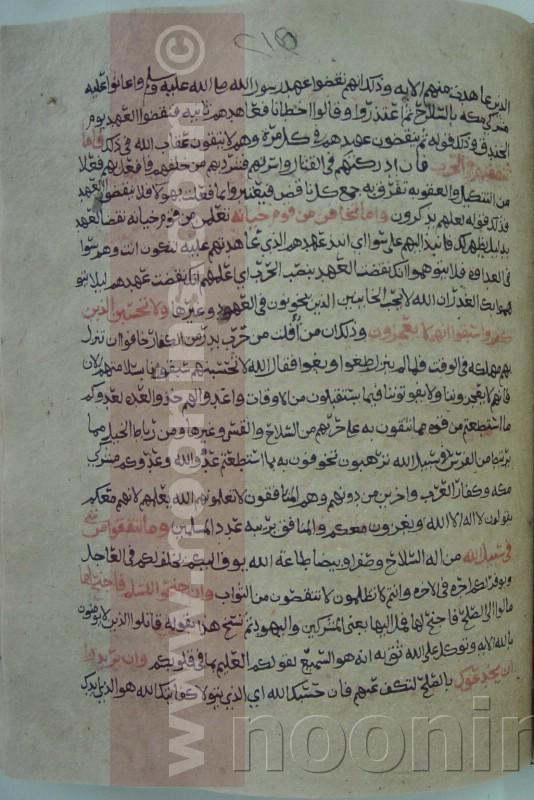 الذين عاهدت منهم الايه وذلك انهم نقضوا عهد رسول الله صلى الله عليه وسلم واعانوا عليه
مشركي مكه بالسّلاح ثمّ اعتذروا وقالوا اخطانا فعاهدهم ثانيه فنقضوا العهد يوم
الخندق وذلك قوله ثم ينقضون عهدهم في كل مرّة وهم لا يتقون عقاب الله في ذلك فاما
تثقفنهم في الحرب فان ادركتهم في القتال واسرتهم فشرد بهم من خلفهم فافعل بهم فعلا
من التنكيل والعقوبه تفرّق به جمع كل ناقض فيعتبروا بما فعلت بهولا فلا ينقضوا العهد
فذلك قوله لعلهم يذكرون واما تخافن من قوم خيانة تعلمن من قوم خيانه نقضا للعهد
بدليل يظهر لك فانبذ اليهم على سوا اي انبذ عهدهم الذي عاهدتهم عليه لتكون انت وهم سوا
في العداوة فلا يتوهموا انك نقضت العهد بنصب الحرب اي اعلمهم انك نقضت عهدهم ليلا يتو
هموا بك الغدر ان الله لا يحب الخاينين الذين يخونون في العهود وغيرها ولا تحسبن الذين
كفروا سبقوا انهم لا يعجزون وذلك ان من افلت من حرب بدر من الكفار خافوا ان تنزل
بهم مهلكه في الوقت فلما لم ينزل طغوا وبغوا فقال الله لا تحسبنهم سبقونا بسلامتهم الان
فانهم لا يعجزوننا ولا يفوتوننا فيما يستقبلون من الاوقات واعدوا لهم خذوا العدّه لعدوكم
ما استطعتم من قوه مما تتقون به على حربهم من السّلاح والقسي وغيرها ومن رباط الخيل مما
يرتبط من الفرس في سبيل الله ترهبون تخوفون به بما استطعتم عدو الله وعدوكم مشركي
مكه وكفار العرب واخرين من دونهم وهم المنافقون لا تعلمونهم الله يعلمهم لانهم معكم
يقولون لا اله الا الله ويغزون معكم والمنافق يريبه عدد المسلمين وما تنفقوا من شي
في سبيل الله من اله السّلاح وصفرا وبيضا طاعة الله يوف اليكم يخلف لكم في العاجل
ويوفر لكم اجره في الاخرة وانتم لا تظلمون لا تنقصون من الثواب وان جنحوا للسلم فاجنح لها
مالوا الى الصّلح فاجنح لها فمل اليها يعني المشركين واليهود ثم نسخ هذا بقوله قاتلوا الذين لا يومنون
بالله الايه وتوكل على الله ثق به انه هو السميع لقولكم العليم بما في قلوبكم وان يريدوا
ان يخدعوك بالصّلح لتكف عنهم فان حسبك الله اي الذي يتولا كفايتك الله هو الذي ايدك
www.noormags
noorin